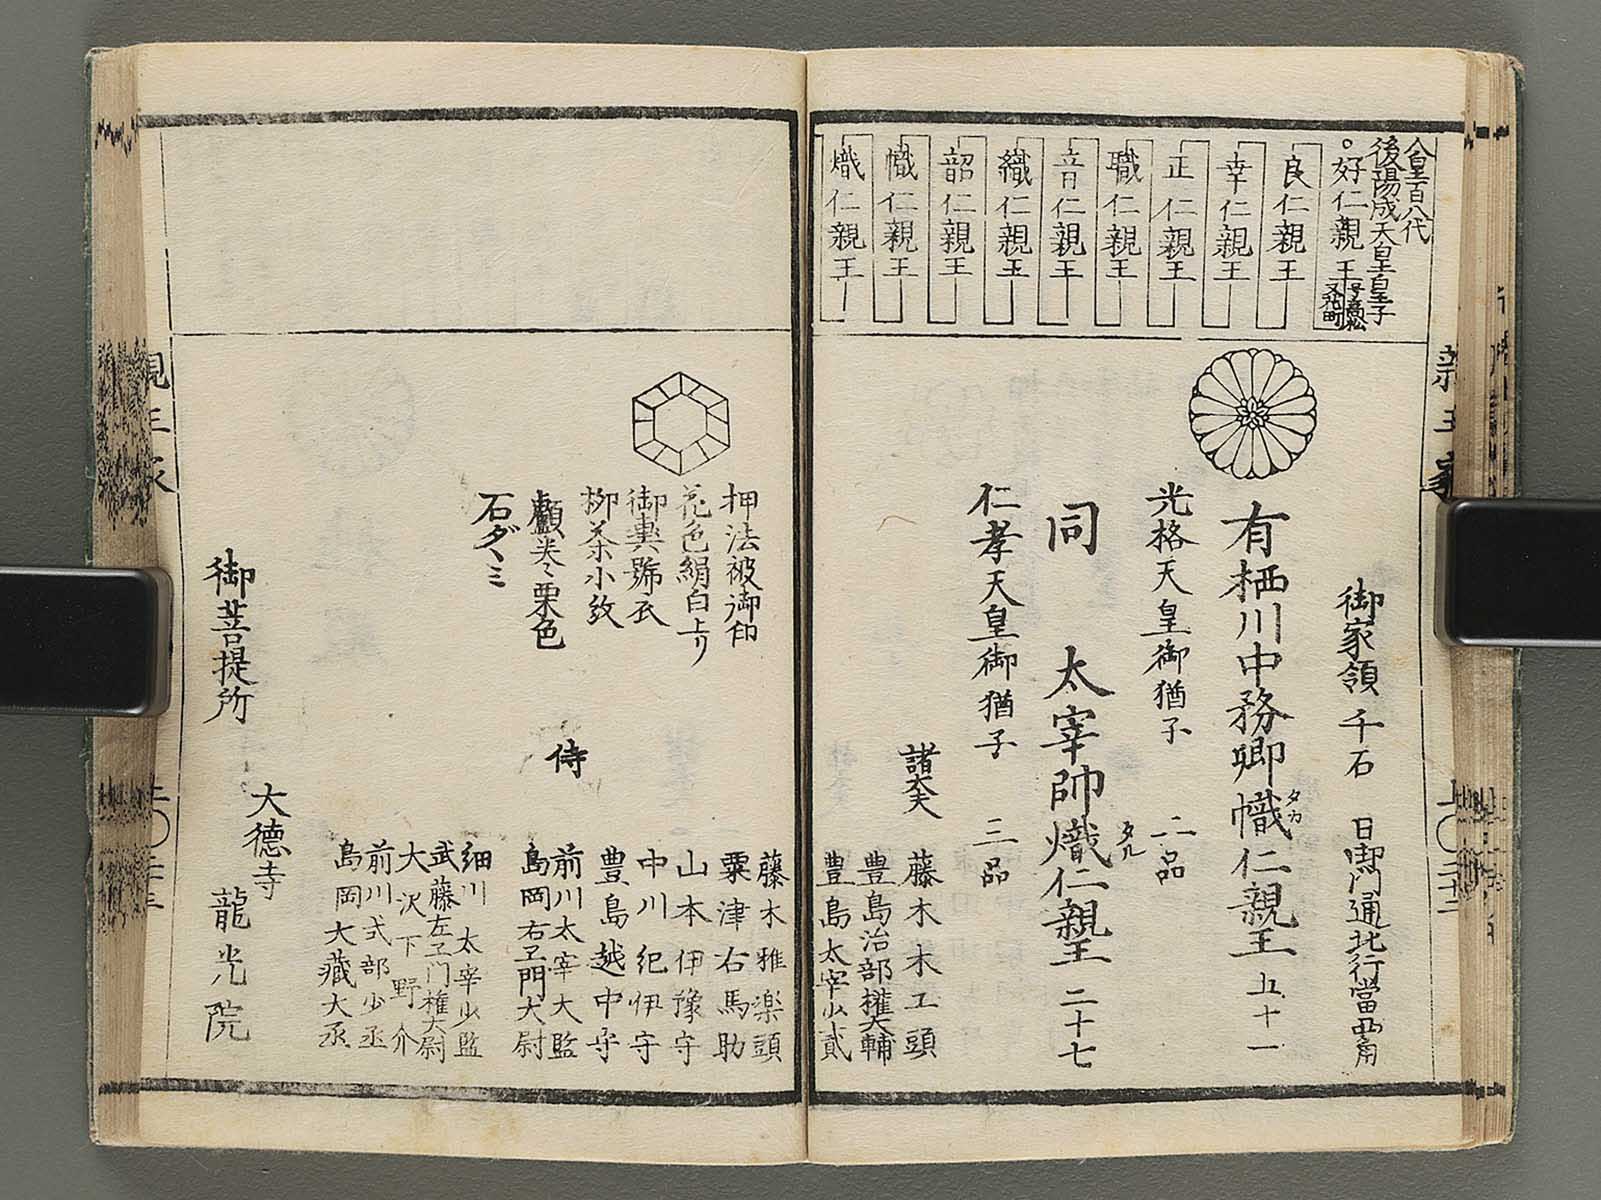 人皇百八代
後陽成天皇皇子
。好仁親王
号高松
又花町
良仁親王
幸仁親王
正仁親王
職仁親王
音仁親王
織仁親王
韶仁親王
幟仁親王
熾仁親王
御家領 千石 日御門通北行當西角
有栖川中務卿幟仁親王 五十一
タカ
光格天皇御猶子 二品
同 太宰帥熾仁親王 二十七
タル
仁孝天皇御猶子 三品
諸大夫 藤木木工頭
豊島治部権大輔
豊島太宰少貳
藤木雅楽頭
粟津右馬助
山本伊豫守
中川紀伊守
豊島越中守
押法被御印
花色絹白上リ
御輿舁衣
柳茶小紋
顱巻ミ栗色
石ダヽミ
侍 前川太宰大監
島岡右卫門大尉
細川太宰少監
武藤左卫門権大尉
大沢下野介
前川式部少丞
島岡大藏大丞
御菩提所 大德寺
龍光院
親王家